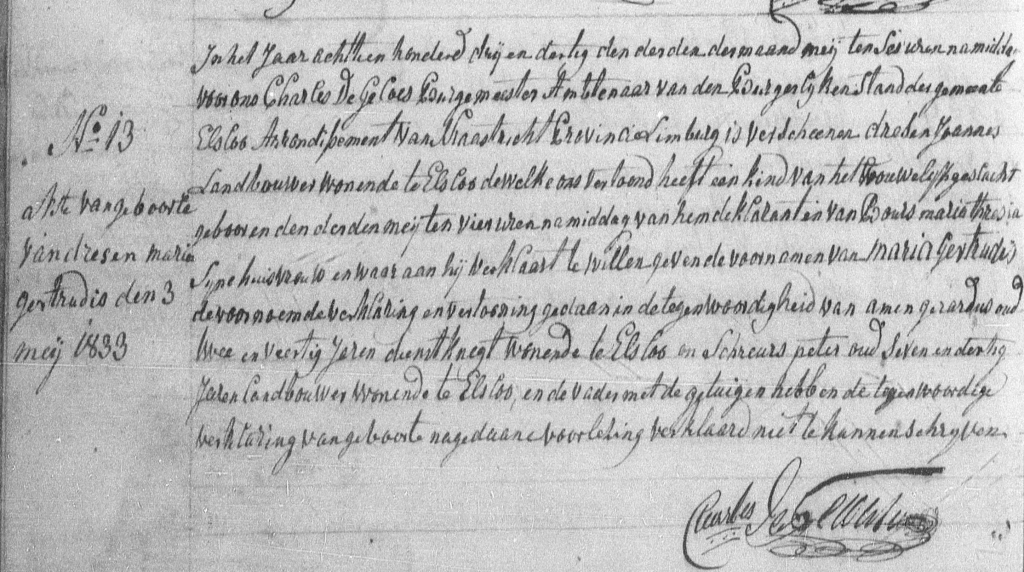 No. 13
akte van geboorte
van dresen maria
gertrudis den 3
meij 1833
In het Jaar achttien honderd drij en dertig den derden der maand meij ten Ses uren namidda-
voor ons Charles De Geloes Burgemeester Ambtenaar van den Burgerlyken Stand der gemeente
Elsloo Arrondissement van Maastricht Provincie Limburg is verscheenen dresen Joannes
Landbouwer wonende te Elsloo dewelke ons vertoond heeft een kind van het Vrouwelijk geslacht
gebooren den derden meij ten vier uren namiddag van hem deklarant en van Bours maria thresia
Syne huisvrouw en waar aan hij verklaart te willen geven de voornamen van Maria Gertrudis
de voornoemde verklaring en vertooning gedaan in de tegenwoordigheid van amen gerardus oud
twee en veertig Jaren dienstknegt wonende te Elsloo en Schreurs peter oud seven en dertig
Jaren Landbouwer wonende te Elsloo, en de vader met de getuigen hebben de tegenwoordige
verklaring van geboorte na gedaane voorlesing verklaard niet te kunnen schryven
Charles De Geloes